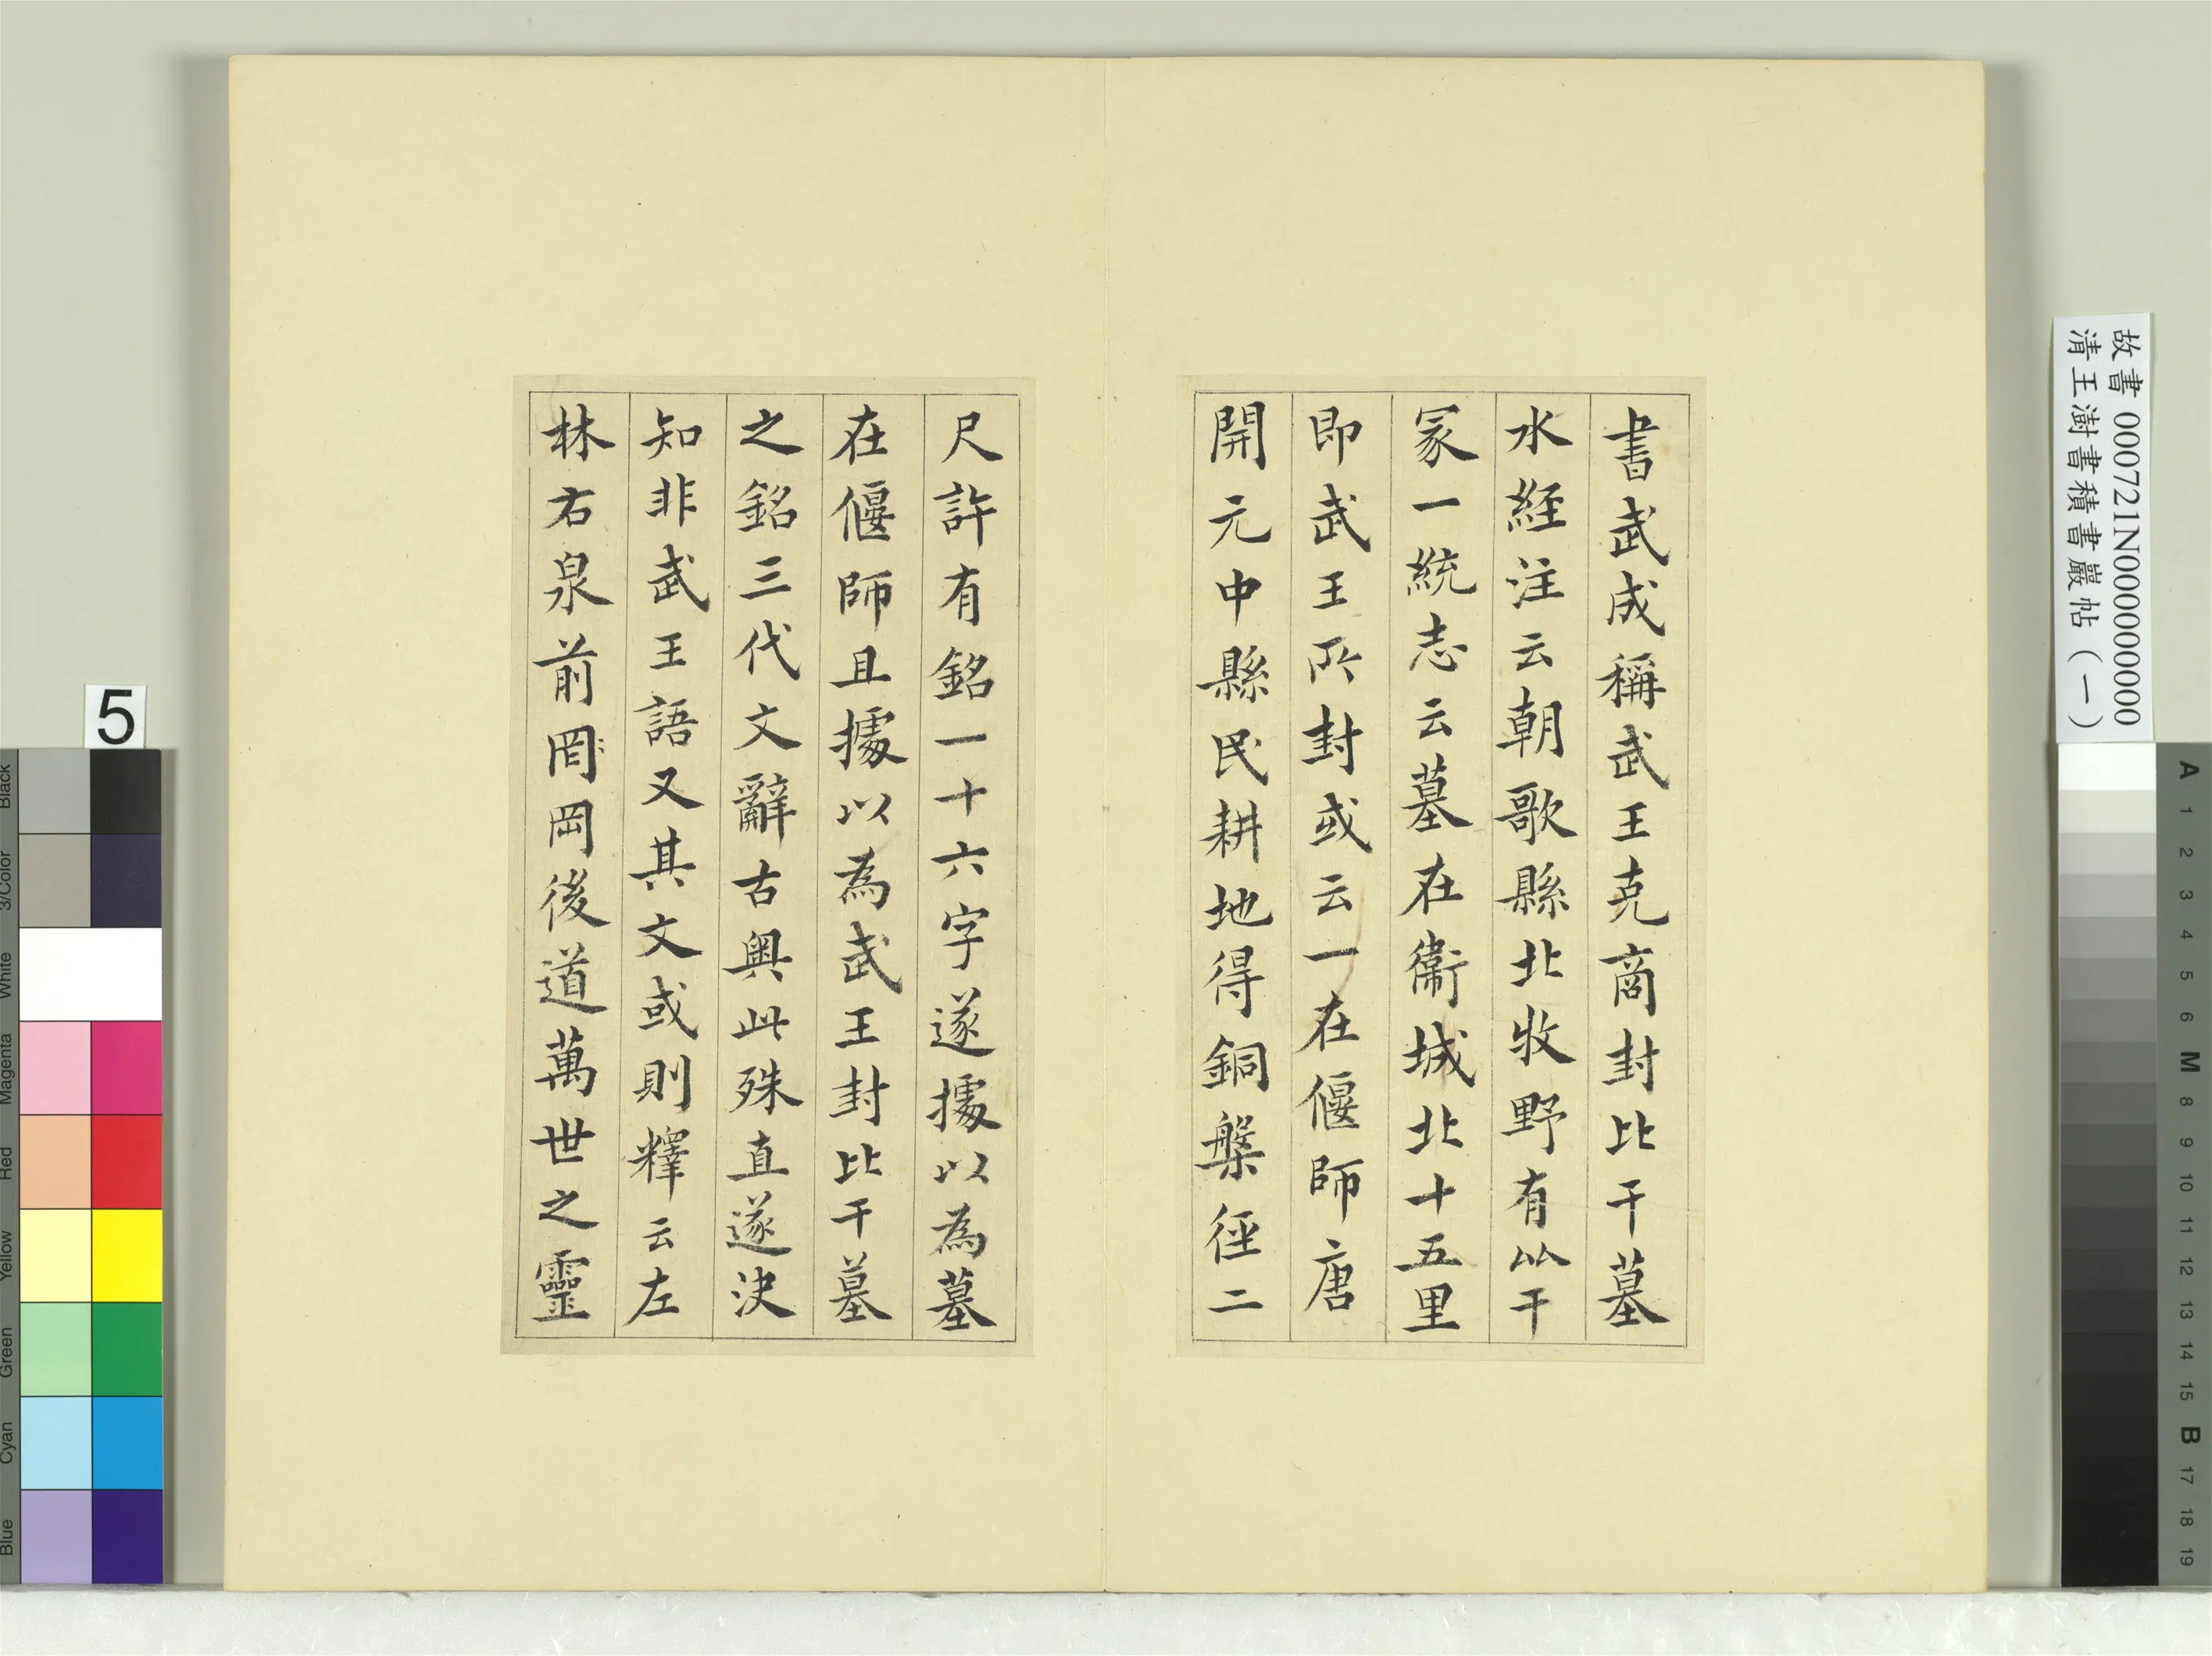 書武成稱武王克商封比干墓
水經注云朝歌縣北牧野有比干
冢一統志云墓在衞城北十五里
即武王所封或云一在偃師唐
開元中縣民耕地得銅槃徑二
尺許有銘一十六字遂據以為墓
在偃師且據以為武王封比干墓
之銘三代文辭古奧此殊直遂決
知非武王語又其文或則釋云左
林右泉前罔岡後道萬世之靈
故書 000721N000000000
清王澍書積書巖帖（一）
5
Black
3/Color
White
Magenta
Red
Yellow
Green
Cyan
Blue
A
1
2
3
4
5
6
M
8
9
10
11
12
13
14
15
B
17
18
19